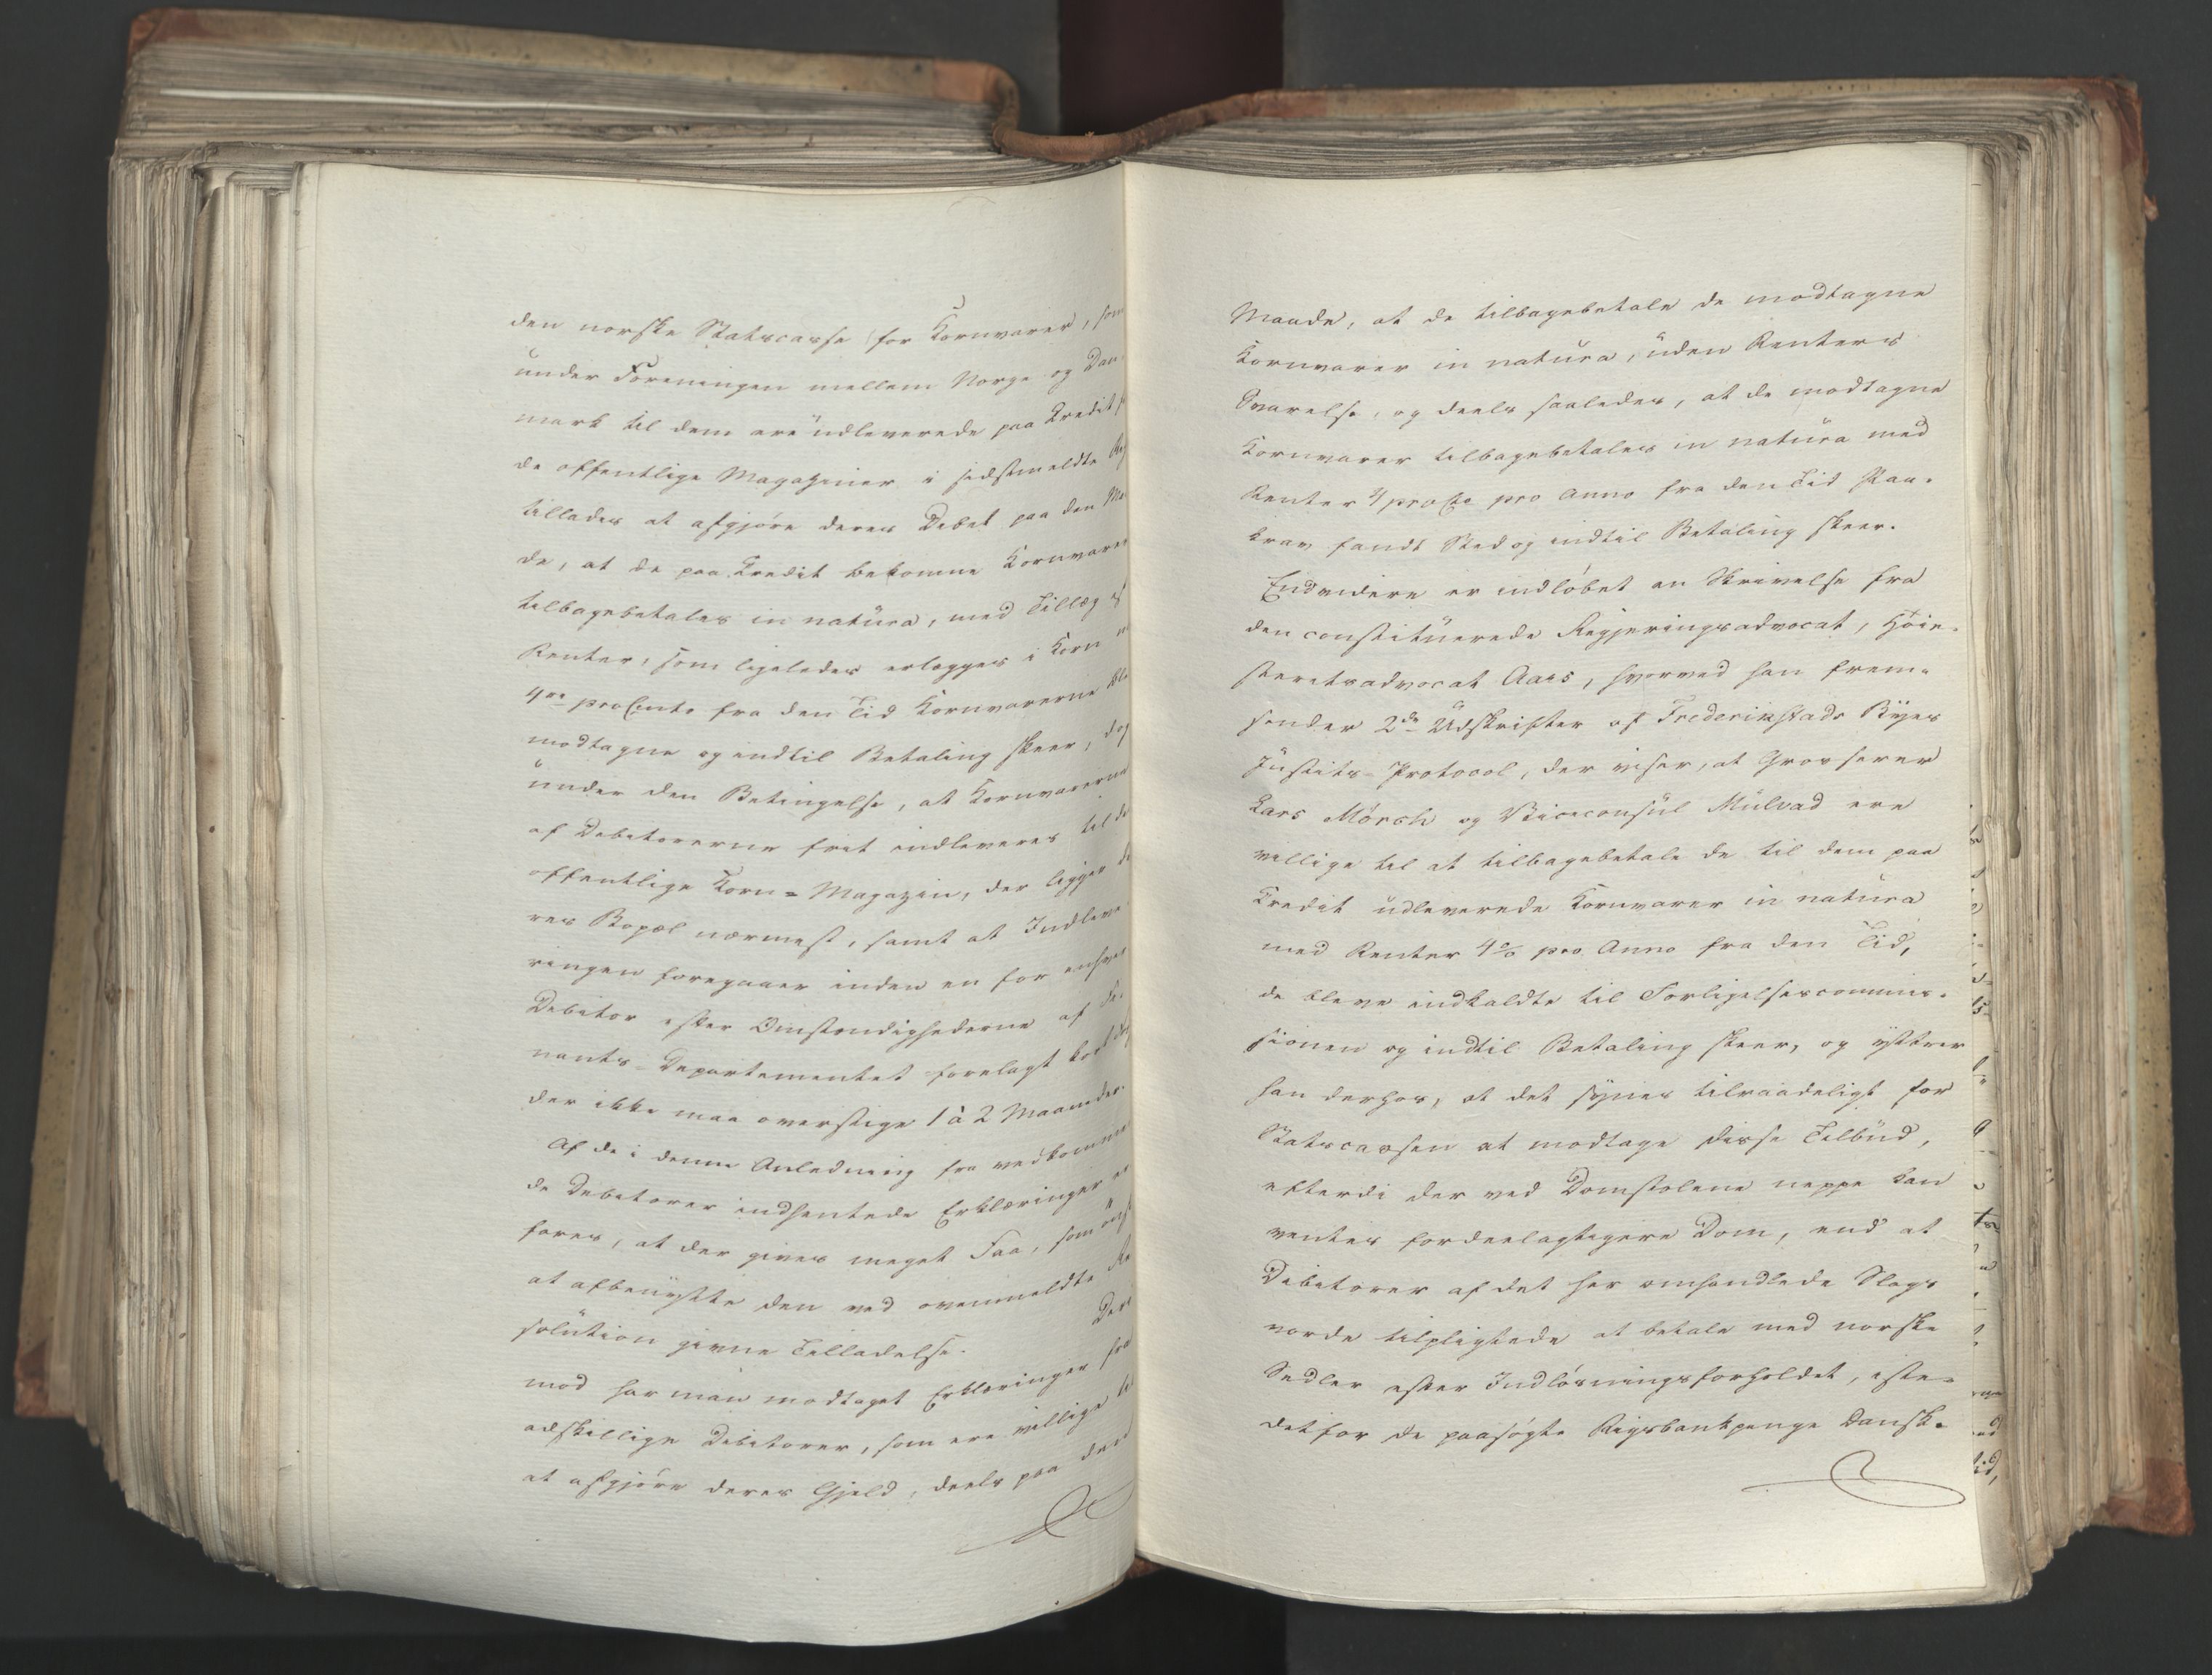 den norske Statscasse for Kornvarer, som
under Foreningen mellem Norge og Dan-
mark til dem ere udleverede paa Credit
de offentlige Magaziner i sidstmeldte
tillades at afgjøre deres Debet paa den Ma
de, at de paa Credit bekomne Kornvarer
tilbagebetales in natura, med Tillæg af
Renter, som ligeledes erlægges i Korn
4re proCento fra den Tid Kornvarerne ble
modtagne og indtil Betaling skeer, dog
under den Betingelse, at Kornvarerne
af Debitorerne frit indleveres til de
offentlige Korn-Magazin, der ligger de
res Bopæl nærmest, samt at Indleve
ringen foregaaer inden en for enhver
Debitor efter Omstændighederne af Fi-
nants-Departementet forelagt kort
der ikke maa overstige 1 à 2 Maaneder.
Af de i denne Anledning fra vedkommen
de Debitorer indhentede Erklæringer er
fares, at der gives meget Faa, som ønsk
at afbenytte den ved ovenmeldte Re
solution givne Tilladelse. Der
mod har man modtaget Erklæringer fra
adskillige Debitorer, som ere villige til
at afgjøre deres Gjeld, deels paa den
Maade, at de tilbagebetale de modtagne
Kornvarer in natura, uden Renters
Svarelse, og deels saaledes, at de modtagne
Kornvarer tilbagebetales in natura med
Renter 4 proCto pro Anno fra den Tid Paa-
krav fandt Sted og indtil Betaling skeer.
Endvidere er indløbet en Skrivelse fra
den constituerede Regjeringsadvocat, Høie-
steretsadvocat Aars, hvorved han frem-
sender 2de Udskrifter af Frederikstads Byes
Justits-Protocol, der viser, at Grosserer
Lars Mørch og Viceconsul Mulvad ere
villige til at tilbagebetale de til dem paa
Credit udleverede Kornvarer in natura
med Renter 4 % pro Anno fra den Tid,
de bleve indkaldte til Forligelsescommis-
sionen og indtil Betaling skeer, og yttrer
han derhos, at det synes tilraadeligt for
Statscassen at modtage disse Tilbud,
efterdi der ved Domstolene neppe kan
ventes fordeelagtigere Dom, end at
Debitorer af det her omhandlede Slags
vorde tilpligtede at betale med norske
Sedler efter Indløsningsforholdet, iste-
detfor de paasøgte Rigsbankpenge Dansk.